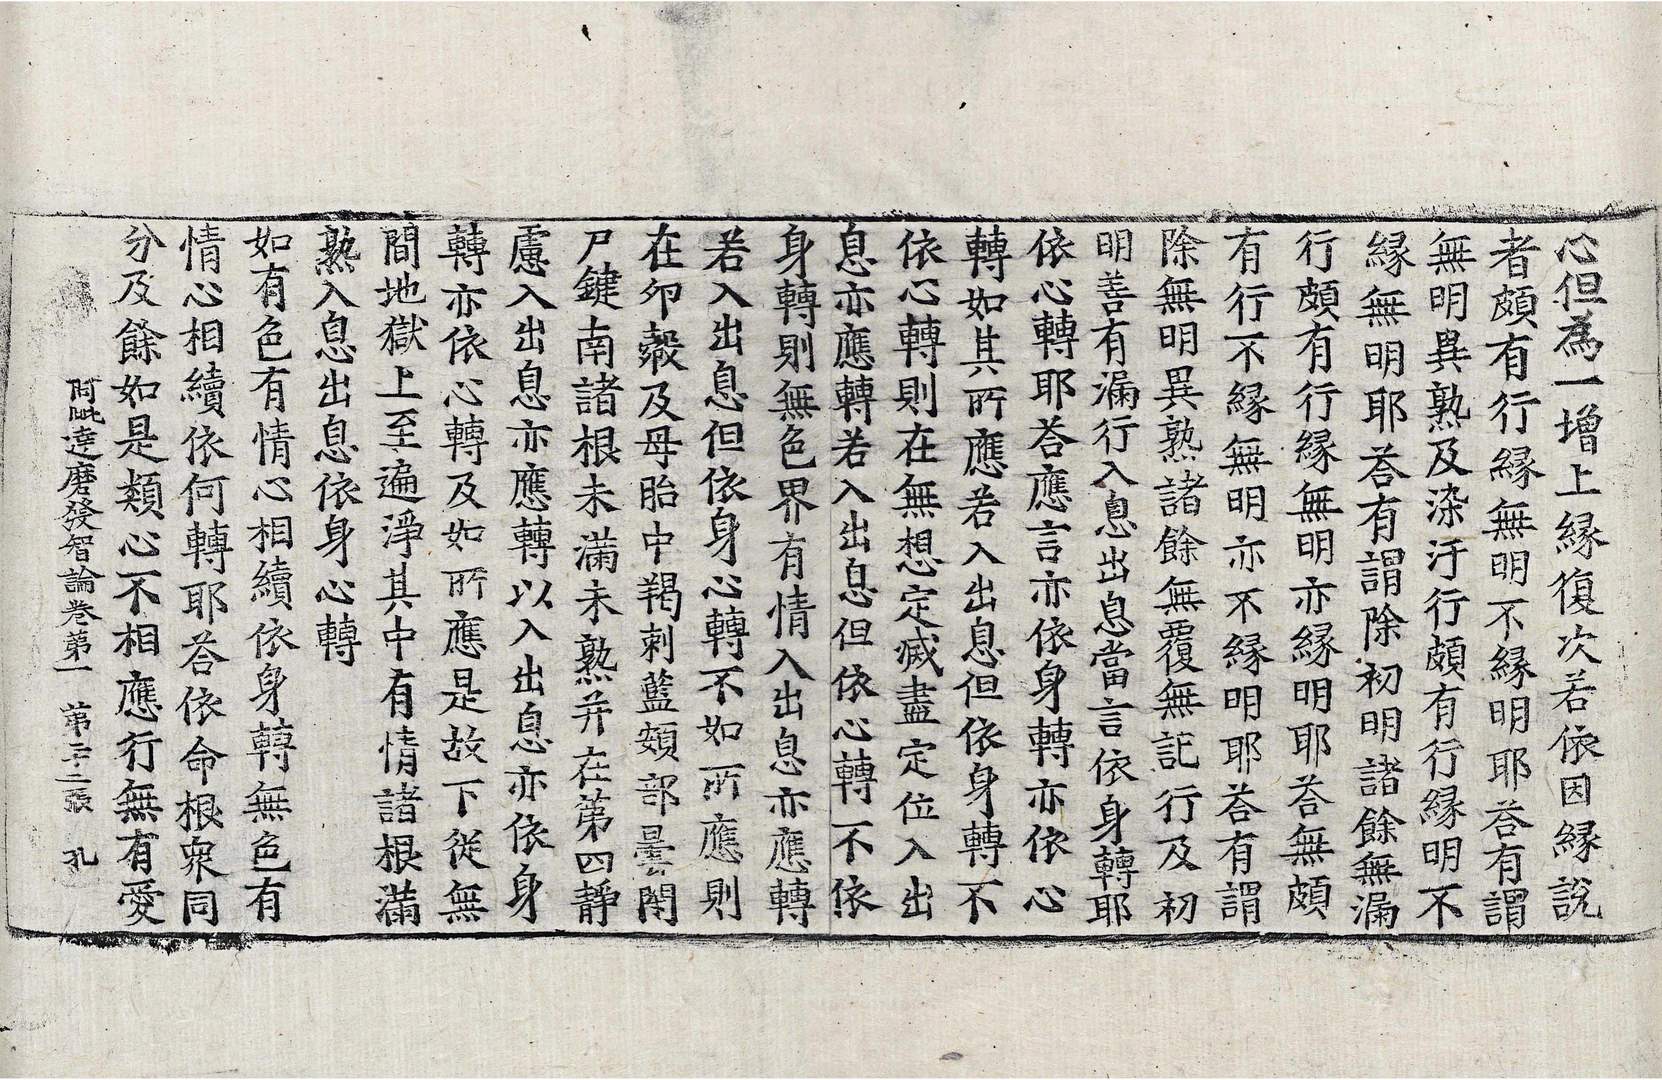 心但為一增上緣復次若依因緣說
者頗有行緣無明不緣明耶荅有謂
無明異熟及染汙行頗有行緣明不
緣無明耶荅有謂除初明諸餘無漏
行頗有行緣無明亦緣明耶荅無頗
有行不緣無明亦不緣明耶荅有謂
除無明異熟諸餘無覆無記行及初
明善有漏行入息出息當言依身轉耶
依心轉耶荅應言亦依身轉亦依心
轉如其所應若入出息但依身轉不
依心轉則在無想定滅盡定位入出
息亦應轉若入出息但依心轉不依
身轉則無色界有情入出息亦應轉
若入出息但依身心轉不如所應則
在卵㲉及母胎中羯剌藍頞部曇閇
尸鍵南諸根未滿未熟并在第四靜
慮入出息亦應轉以入出息亦依身
轉亦依心轉及如所應是故下從無
間地獄上至遍淨其中有情諸根滿
熟入息出息依身心轉
如有色有情心相續依身轉無色有
情心相續依何轉耶荅依命根衆同
分及餘如是類心不相應行無有愛
阿毗達磨發智論卷第一 第二十二張 孔